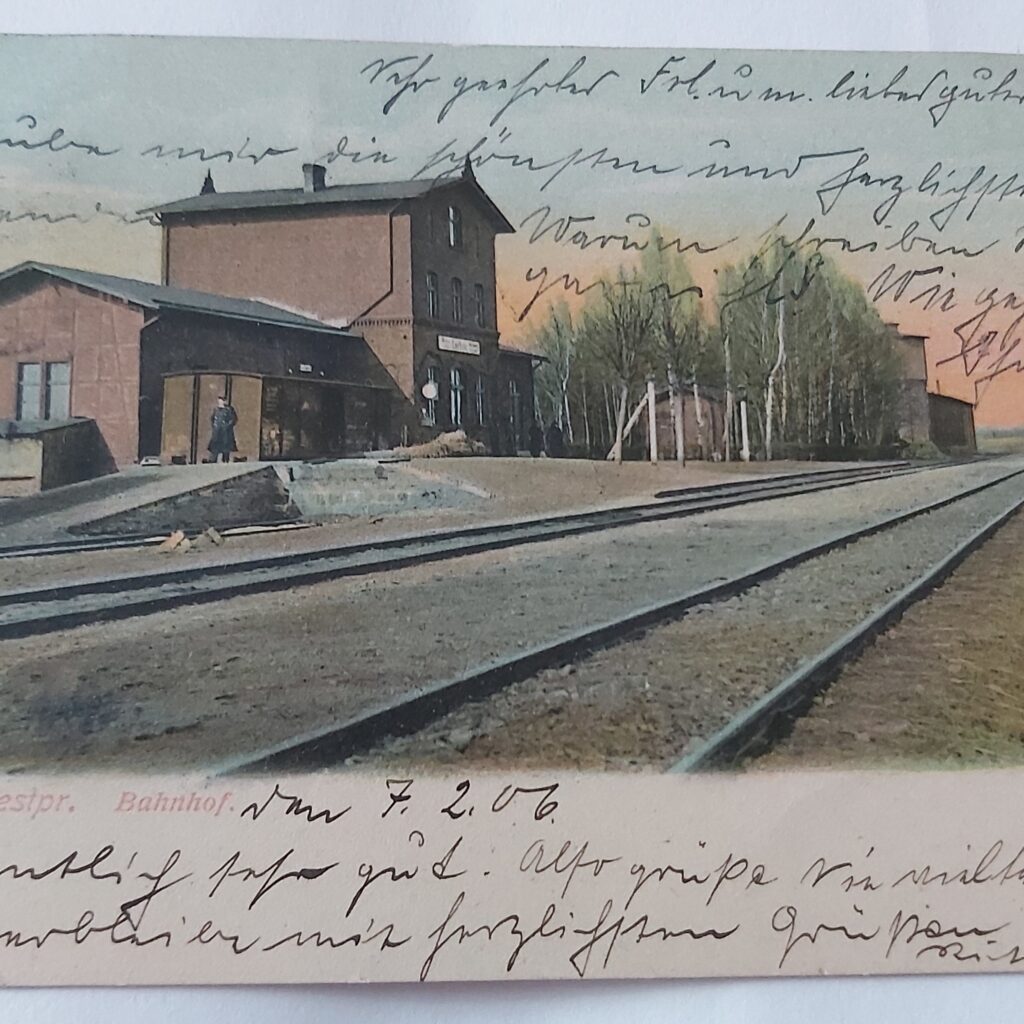 Sehr geehrtes Frl. u. m. liebes gutes
mir die schönsten und herzlichste
Warum schreiben
gar nicht. Wie
estpr. Bahnhof. den 7. 2. 06.
ntlich sehr gut. Also grüße Sie
verbleibe mit herzlichsten Grüßen